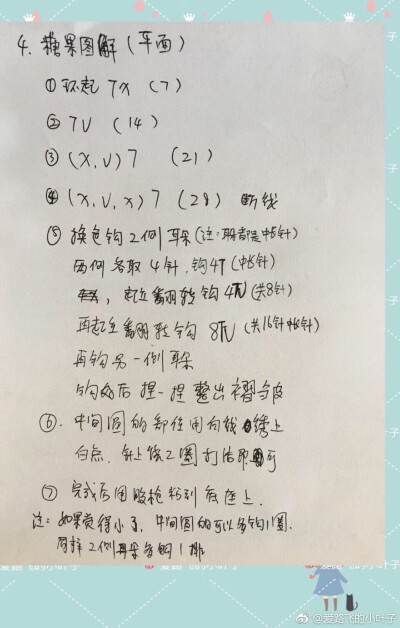 4. 糖果图解（平面）
① 环起 7X （7）
② 7V （14）
③ (X,V) 7 （21）
④ (X,V,X) 7 （28） 断线
⑤ 换色钩2侧耳朵（注：耳朵都是中长针）
两侧各取4针，钩4T（中长针）
起立翻面接钩4TV（共8针）
再起立翻面接钩 8TV（共16针中长针）
再钩另一侧耳朵
钩好后 捏一捏 整出褶皱
⑥. 中间圆的部位用白线绣上
白点，针上绕2圈打结即可
⑦ 完成后用胶枪粘到底座上.
注：如果觉得小了，中间圆的可以多钩1圈.
同样2侧耳朵多钩1排
@爱路飞的小叶子